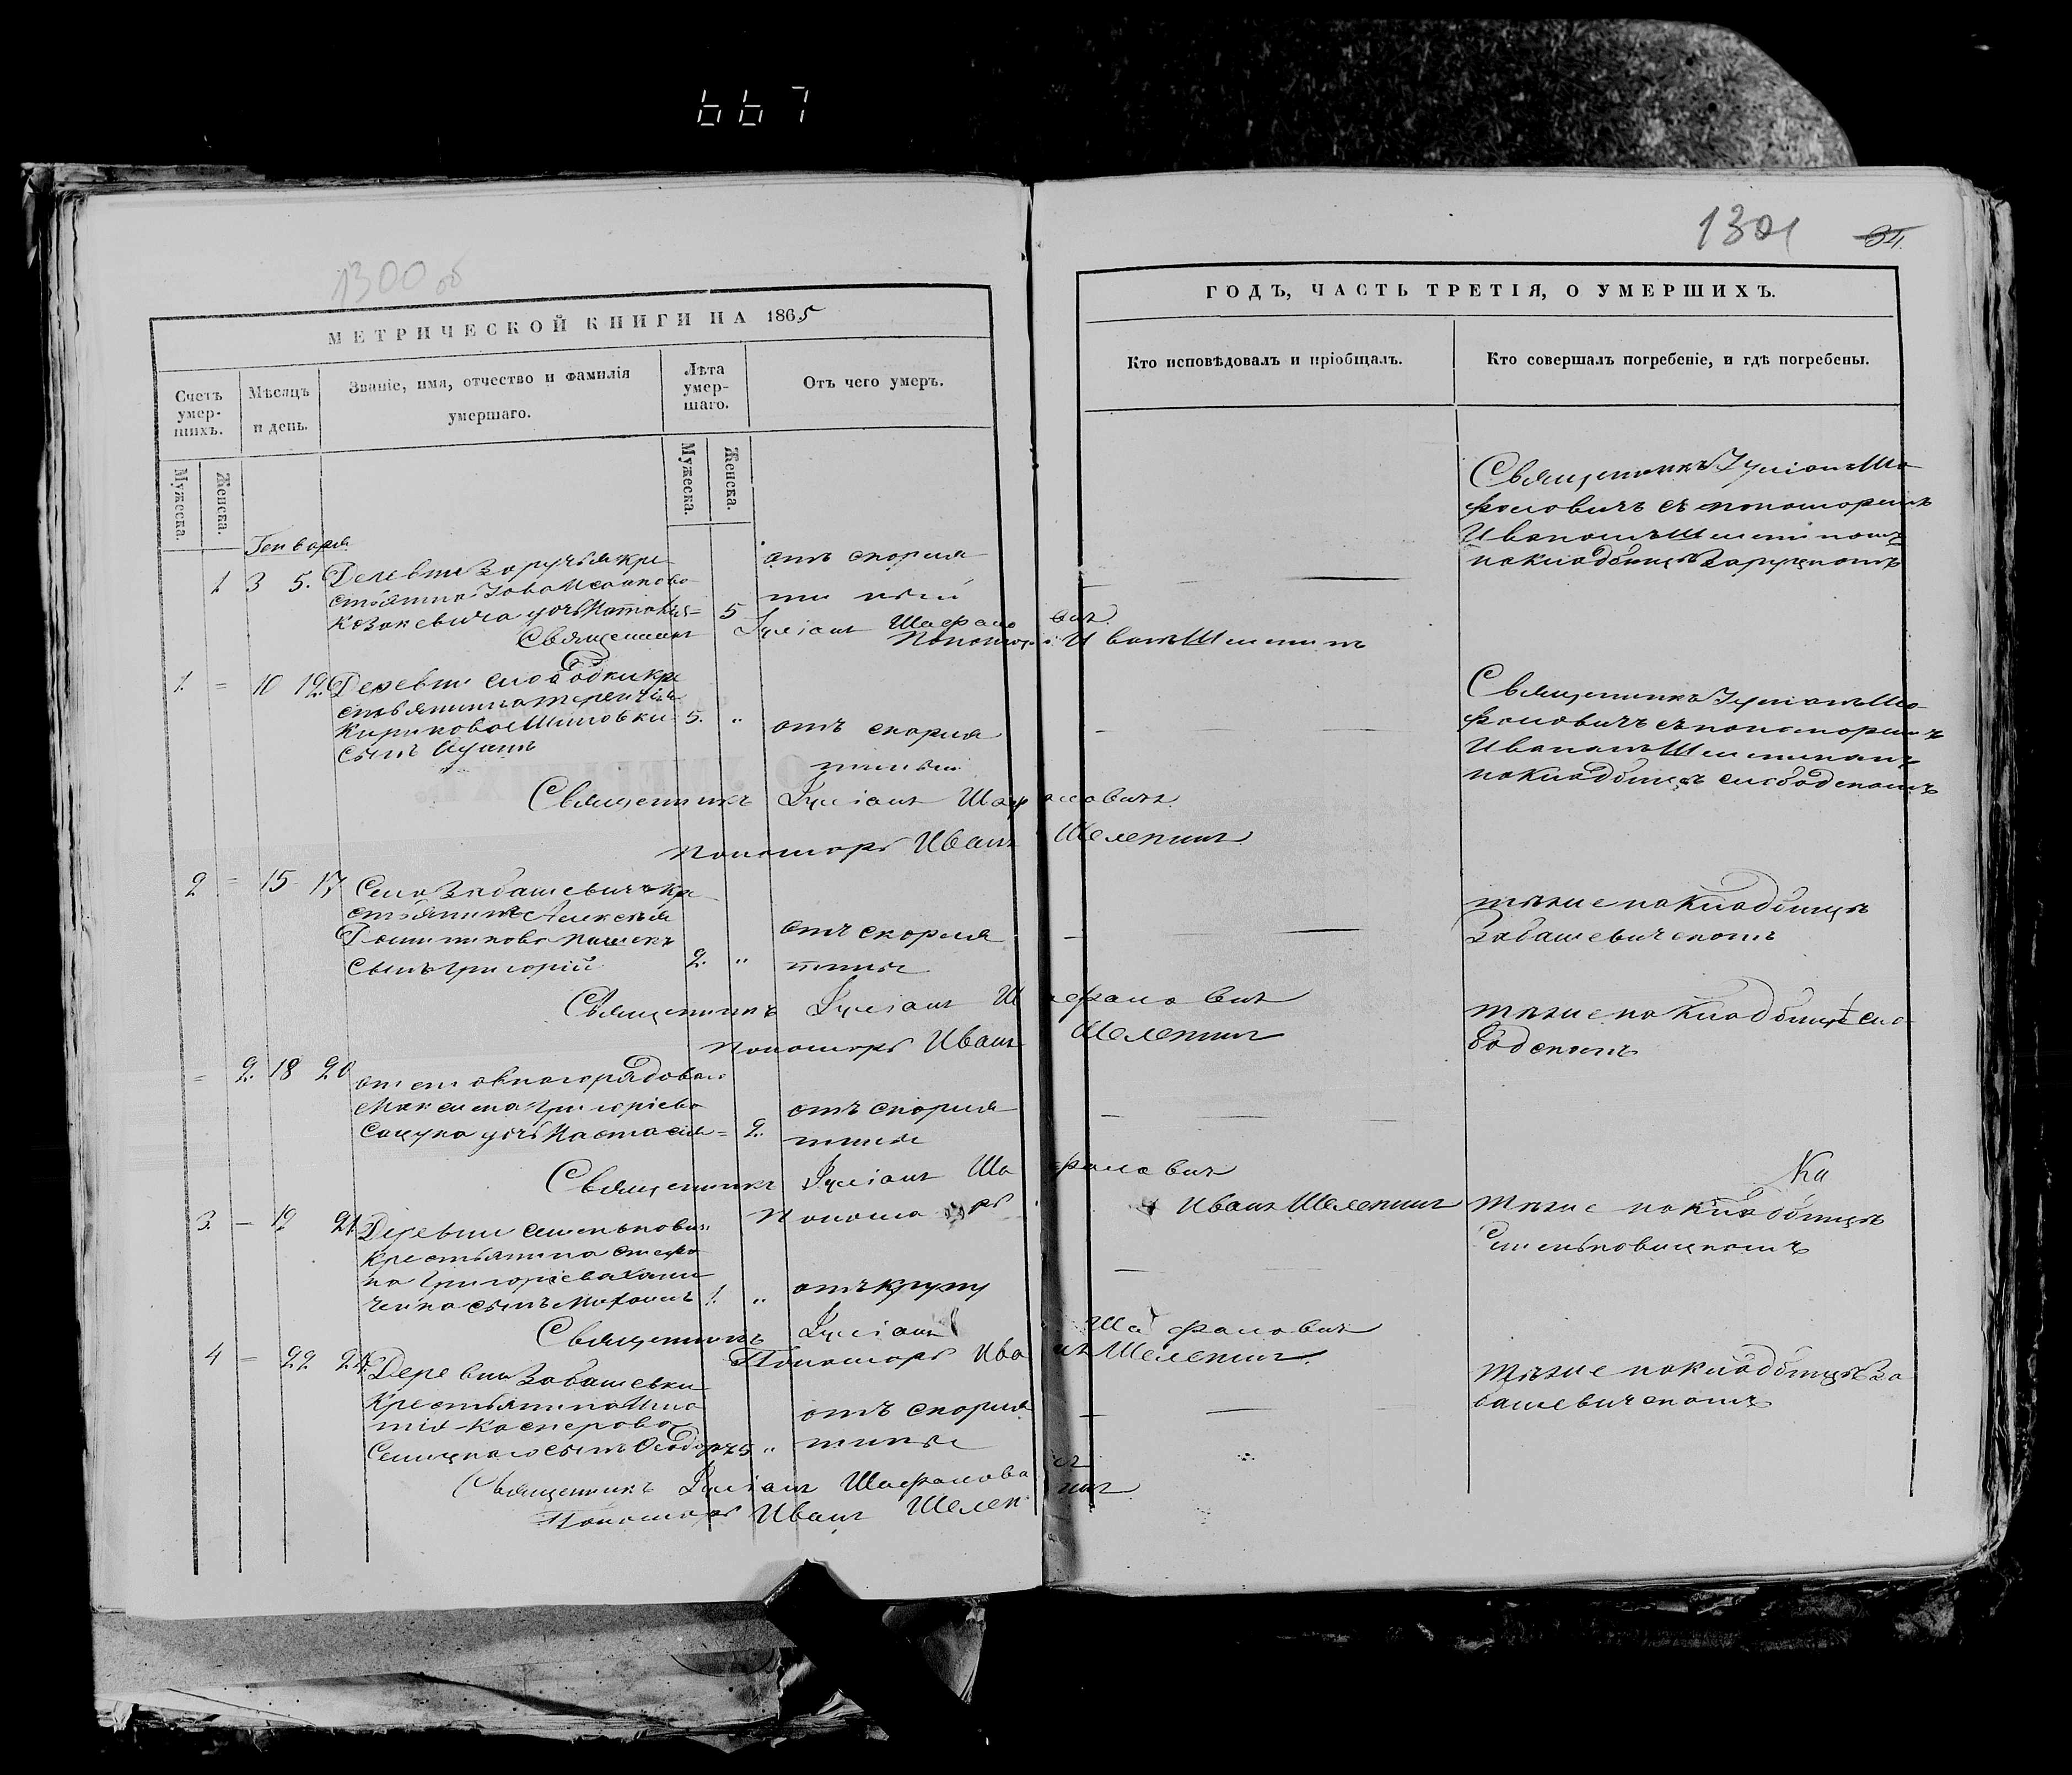 667
1300 об
МЕТРИЧЕСКОЙ КНИГИ НА 1865
Счетъ умер-шихъ.
Мѣсяцъ и день.
Званіе, имя, отчество и фамилія умершаго.
Лѣта умер-шаго.
Отъ чего умеръ.
Мужеска.
Женска.
Мужеска.
Женска.
Генваря
1 3 5. Деревни Заручья кре
стьянина Іова Исаакова
Козакевича дочь 5
отъ скорля
тины
Священникъ Іуліанъ Шафаловичъ
Пономарь Иванъ Шелепинъ
1. = 10 12. Деревни Слободки кре
стьянина Терентія
Кирикова 5. "
сынъ
отъ скорля
тины
Священникъ Іуліанъ Шафаловичъ
Пономарь Иванъ Шелепинъ
2 = 15 17 Села Забашевичъ кре
стьянина Алексѣя
сынъ Григорій 2. "
отъ скорля
тины
Священникъ Іуліанъ Шафаловичъ
Пономарь Иванъ Шелепинъ
= 2. 18 20 рядоваго
Максима Григоріева
Сацука дочь Настасія = 2.
отъ скорля
тины
Священникъ Іуліанъ Шафаловичъ
Пономарь Иванъ Шелепинъ
3. — 19 21 Деревни
крестьянина Стефа
на Григоріева
сынъ 1. "
отъ крупу
Священникъ Іуліанъ Шафаловичъ
Пономарь Иванъ Шелепинъ
4 = 22 24 Деревни Забашевки
крестьянина
Касперова
сынъ Ѳеодоръ 5 "
отъ скорля
тины
Священникъ Іуліанъ Шафаловичъ
Пономарь Иванъ Шелепинъ
1301 34.
ГОДЪ, ЧАСТЬ ТРЕТІЯ, О УМЕРШИХЪ.
Кто исповѣдовалъ и пріобщалъ.
Кто совершалъ погребеніе, и гдѣ погребены.
Священникъ Іуліанъ Ша
фаловичъ съ пономаремъ
Иваномъ Шелепиномъ
на кладбищѣ Заруцкомъ
Священникъ Іуліанъ Ша
фаловичъ съ пономаремъ
Иваномъ Шелепиномъ
на кладбищѣ слободскомъ
тѣже на кладбищѣ
Забашевичскомъ
тѣже на кладбищѣ сло
бодскомъ
На
тѣже на кладбищѣ
тѣже на кладбищѣ За
башевичскомъ